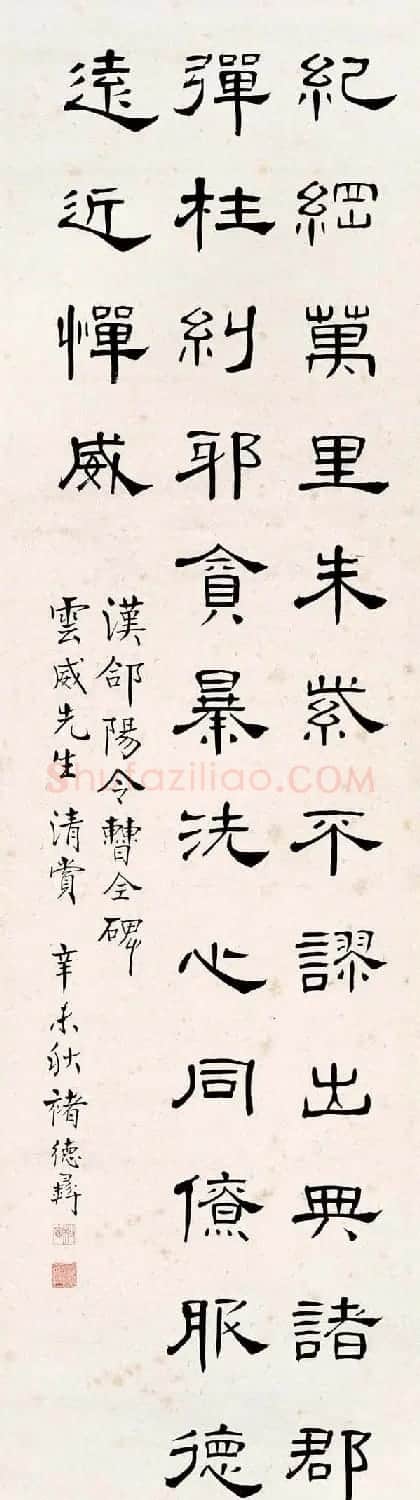 紀綱萬里朱紫不謬出典諸郡
彈枉糾邪貪暴洗心同僚服德
遠近憚威
漢郃陽令曹全碑
雲威先生清賞 辛未秋褚德彝
Shufaziliao.COM